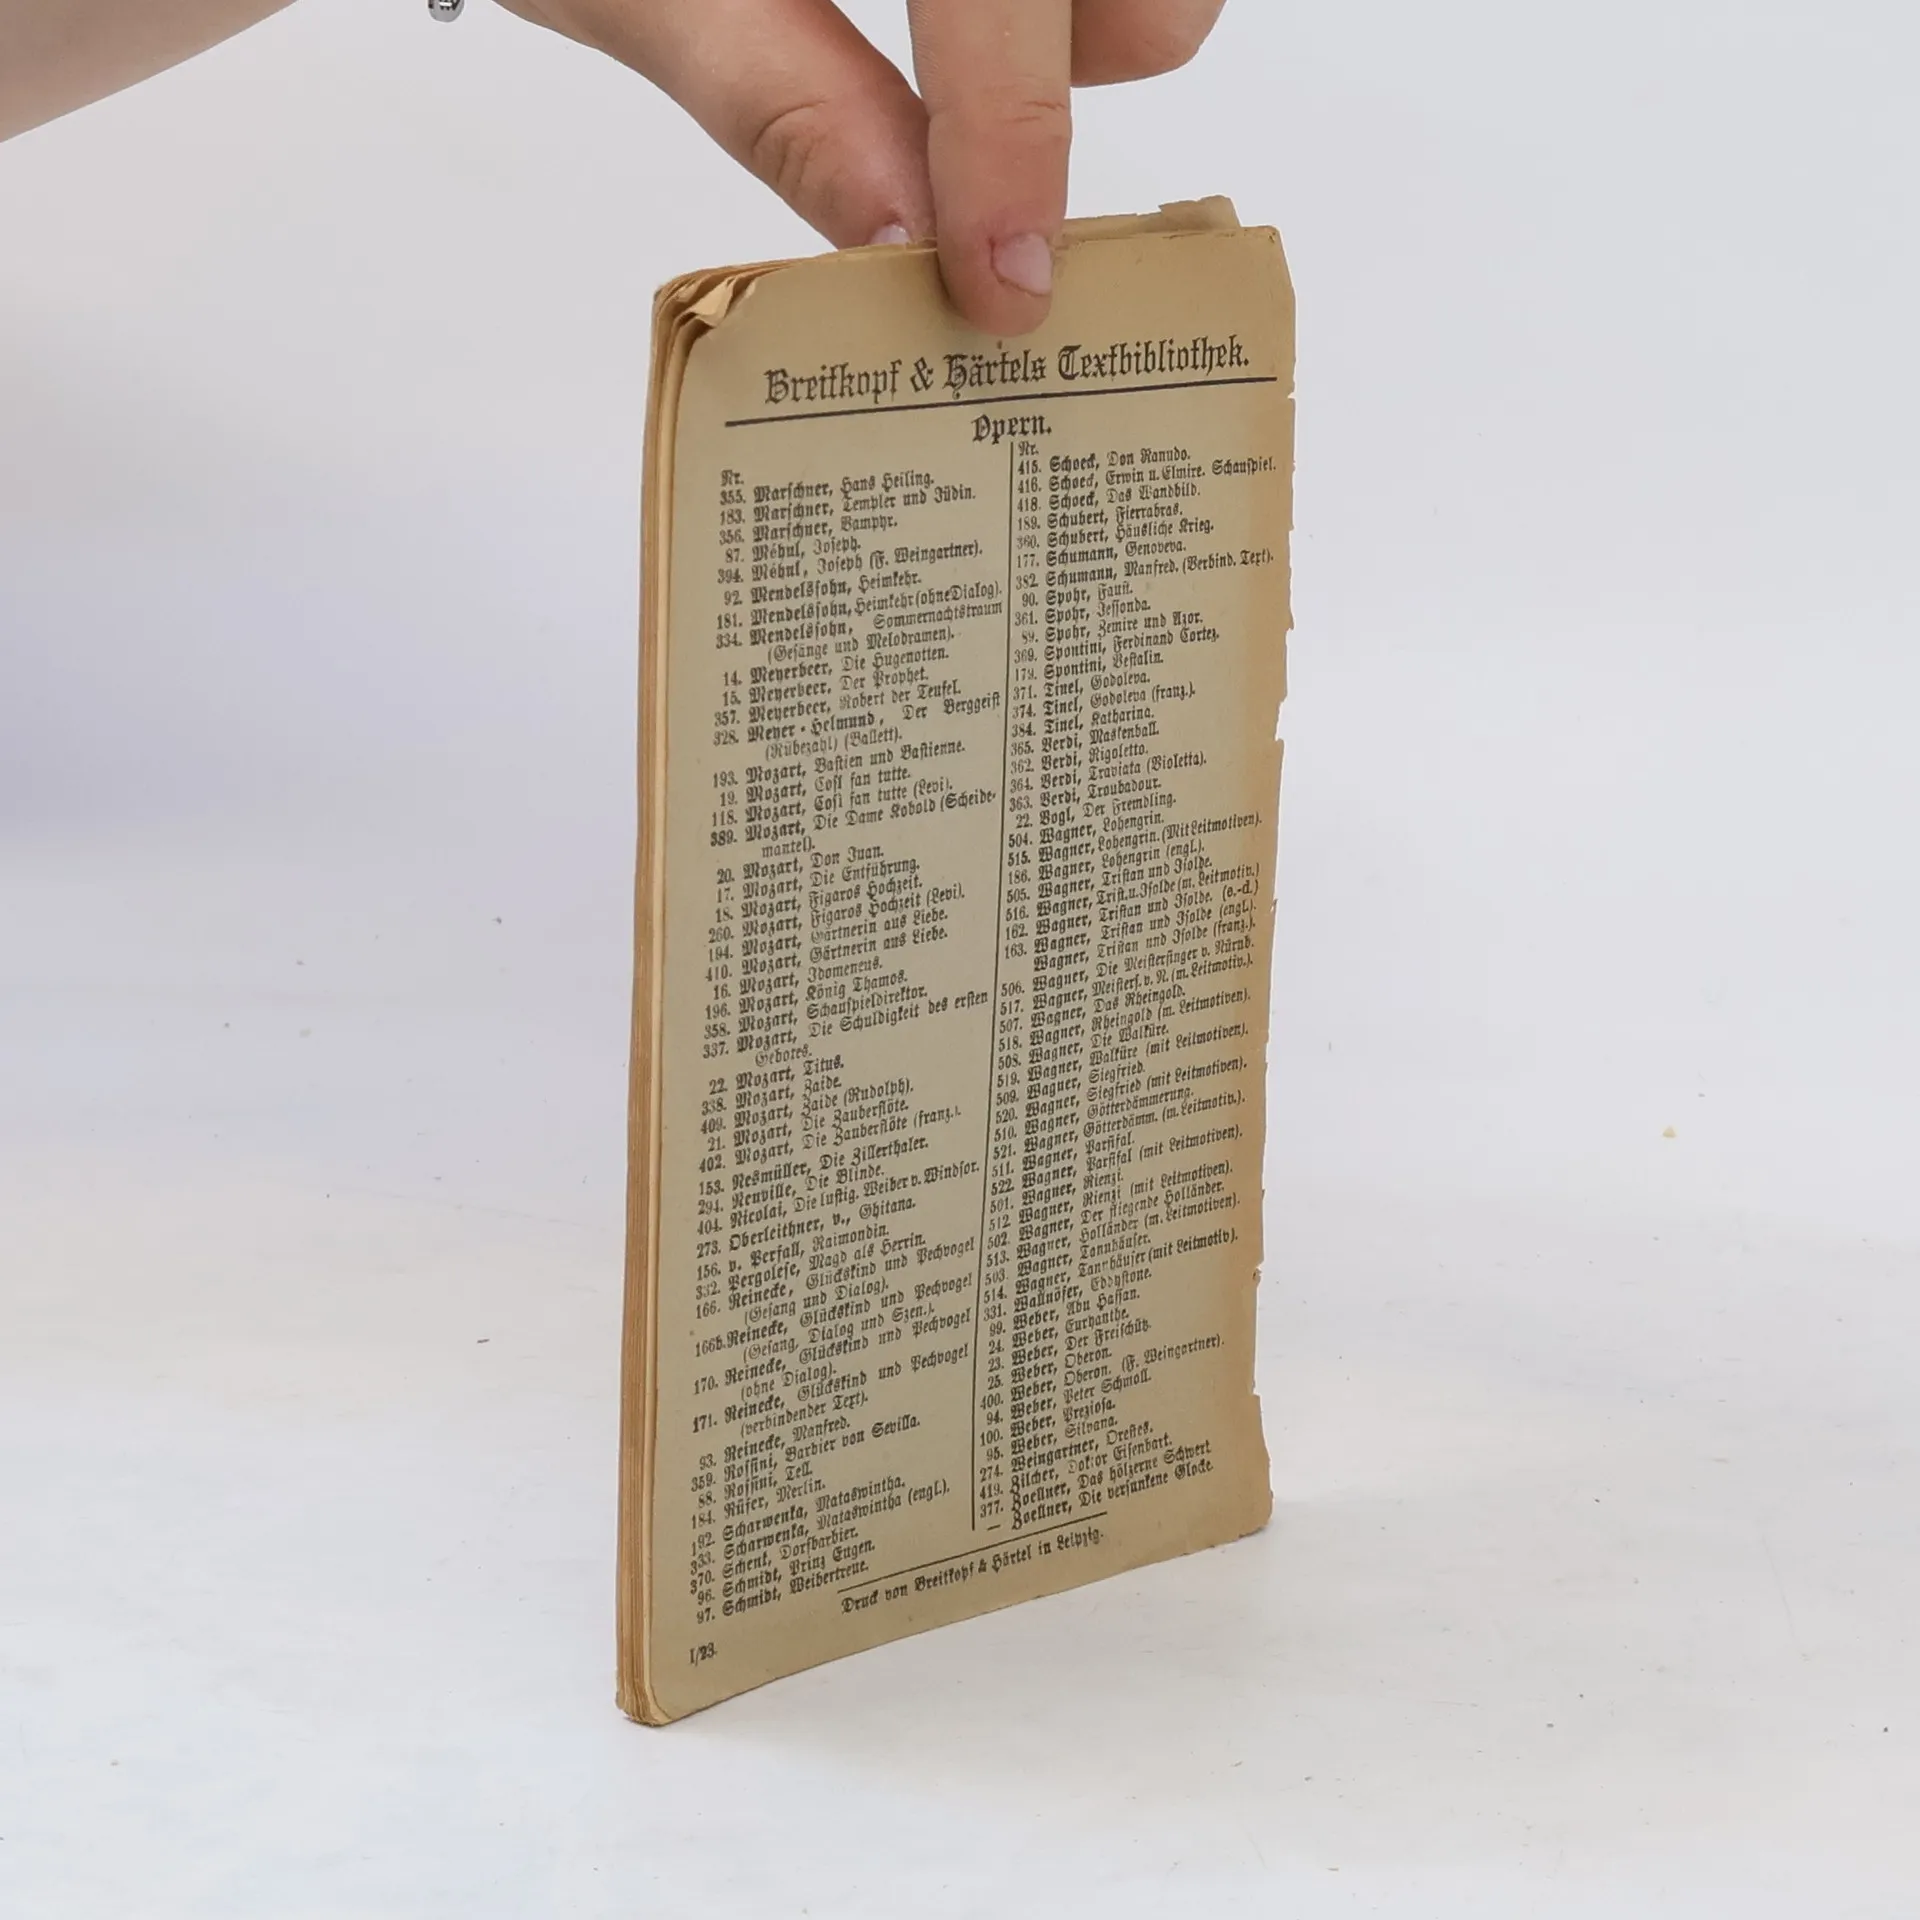 Breitkopf & Härtels Textbibliothek.
Opern.
Nr.
355. Marschner, Hans Heiling.
183. Marschner, Templer und Jüdin.
356. Marschner, Vampyr.
87. Méhul, Joseph.
394. Méhul, Joseph (F. Weingartner).
92. Mendelssohn, Heimkehr.
181. Mendelssohn, Heimkehr (ohne Dialog).
334. Mendelssohn, Sommernachtstraum
(Gesänge und Melodramen).
14. Meyerbeer, Die Hugenotten.
15. Meyerbeer, Der Prophet.
357. Meyerbeer, Robert der Teufel.
328. Meyer-Helmund, Der Berggeist
(Rübezahl) (Ballett).
193. Mozart, Bastien und Bastienne.
19. Mozart, Cosi fan tutte.
118. Mozart, Cosi fan tutte (Levi).
389. Mozart, Die Dame Kobold (Scheide-
mantel).
20. Mozart, Don Juan.
17. Mozart, Die Entführung.
18. Mozart, Figaros Hochzeit.
260. Mozart, Figaros Hochzeit (Levi).
194. Mozart, Gärtnerin aus Liebe.
410. Mozart, Gärtnerin aus Liebe.
16. Mozart, Idomeneus.
196. Mozart, König Thamos.
358. Mozart, Schauspieldirektor.
337. Mozart, Die Schuldigkeit des ersten
Gebotes.
22. Mozart, Titus.
338. Mozart, Zaide.
409. Mozart, Zaide (Rudolph).
21. Mozart, Die Zauberflöte.
402. Mozart, Die Zauberflöte (franz.).
153. Nesmüller, Die Zillerthaler.
294. Neuville, Die Blinde.
404. Nicolai, Die lustig. Weiber v. Windsor.
273. Oberleithner, v., Ghitana.
156. v. Perfall, Raimondin.
332. Pergolese, Magd als Herrin.
166. Reinecke, Glückskind und Pechvogel
(Gesang und Dialog).
166b. Reinecke, Glückskind und Pechvogel
(Gesang, Dialog und Szen.).
170. Reinecke, Glückskind und Pechvogel
(ohne Dialog).
171. Reinecke, Glückskind und Pechvogel
(verbindender Text).
93. Reinecke, Manfred.
359. Rossini, Barbier von Sevilla.
88. Rossini, Tell.
184. Rüfer, Merlin.
192. Scharwenka, Mataswintha.
333. Scharwenka, Mataswintha (engl.).
370. Schenk, Dorfbarbier.
96. Schmidt, Prinz Eugen.
97. Schmidt, Weibertreue.
Nr.
415. Schoeck, Don Ranudo.
416. Schoeck, Erwin u. Elmire. Schauspiel.
418. Schoeck, Das Wandbild.
189. Schubert, Fierrabras.
360. Schubert, Häusliche Krieg.
177. Schumann, Genoveva.
382. Schumann, Manfred. (Verbind. Text).
90. Spohr, Faust.
361. Spohr, Jessonda.
89. Spohr, Zemire und Azor.
369. Spontini, Ferdinand Cortez.
179. Spontini, Vestalin.
371. Tinel, Godoleva.
374. Tinel, Godoleva (franz.).
384. Tinel, Katharina.
365. Verdi, Maskenball.
362. Verdi, Rigoletto.
364. Verdi, Traviata (Violetta).
363. Verdi, Troubadour.
22. Vogl, Der Fremdling.
504. Wagner, Lohengrin.
515. Wagner, Lohengrin. (Mit Leitmotiven).
186. Wagner, Lohengrin (engl.).
505. Wagner, Tristan und Isolde.
516. Wagner, Trist. u. Isolde (m. Leitmotiv.)
162. Wagner, Tristan und Isolde. (e.-d.)
163. Wagner, Tristan und Isolde (engl.).
Wagner, Tristan und Isolde (franz.).
506. Wagner, Die Meistersinger v. Nürnb.
517. Wagner, Meisters. v. N. (m. Leitmotiv.).
507. Wagner, Das Rheingold.
518. Wagner, Rheingold (m. Leitmotiven).
508. Wagner, Die Walküre.
519. Wagner, Walküre (mit Leitmotiven).
509. Wagner, Siegfried.
520. Wagner, Siegfried (mit Leitmotiven).
510. Wagner, Götterdämmerung.
521. Wagner, Götterdämm. (m. Leitmotiv.).
511. Wagner, Parsifal.
522. Wagner, Parsifal (mit Leitmotiven).
501. Wagner, Rienzi.
512 Wagner, Rienzi (mit Leitmotiven).
502. Wagner, Der fliegende Holländer.
513. Wagner, Holländer (m. Leitmotiven).
503. Wagner, Tannhäuser.
514. Wagner, Tannhäuser (mit Leitmotiv).
331. Wallnöfer, Eddystone.
99. Weber, Abu Hassan.
24. Weber, Euryanthe.
23. Weber, Der Freischütz.
25. Weber, Oberon.
400. Weber, Oberon. (F. Weingartner).
94. Weber, Peter Schmoll.
100. Weber, Preziosa.
95. Weber, Silvana.
274. Weingartner, Orestes.
419. Zilcher, Doktor Eisenbart.
377. Zoellner, Das hölzerne Schwert
— Zoellner, Die versunkene Glocke.
Druck von Breitkopf & Härtel in Leipzig.
I/23.